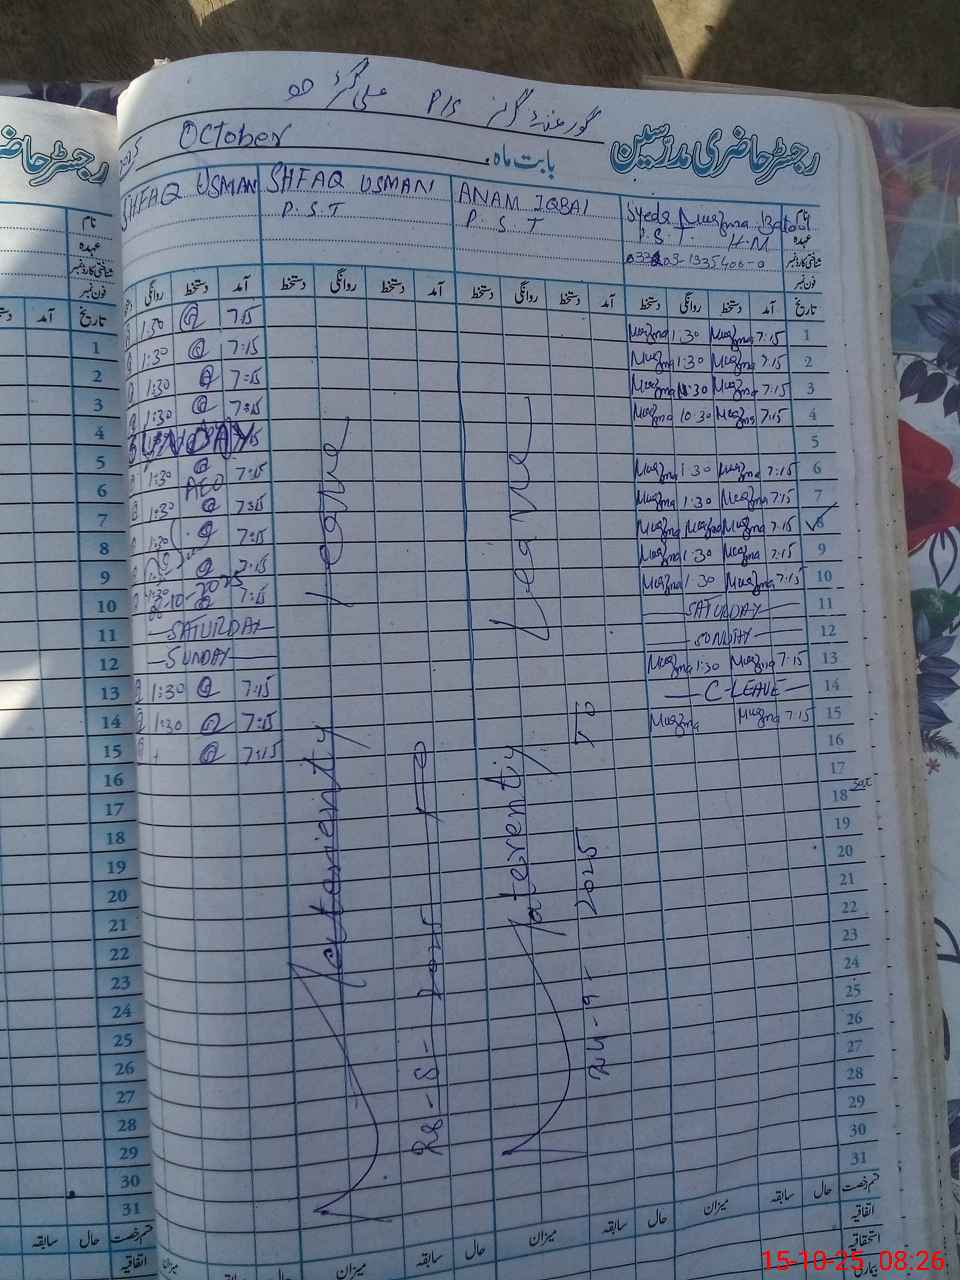 گورنمنٹ گرلز P/S علی گرڑھ
رجسٹر حاضری مدرسین
بابت ماہ
October
2025
SHFAQ USMAN
SHFAQ USMAN
P.S.T
ANAM IQBAL
P.S.T
Syeda
P.S.T. H.M
نام
عہدہ
شناختی کارڈ نمبر
فون نمبر
تاریخ آمد دستخط روانگی دستخط آمد دستخط روانگی دستخط آمد دستخط روانگی دستخط آمد دستخط روانگی
1 7:15 Muazma 1:30 Muazma 7:15 1:30
2 7:15 Muazma 1:30 Muazma 7:15 1:30
3 7:15 Muazma 1:30 Muazma 7:15 1:30
4 7:15 Muazma 10:30 Muazma 7:15 1:30
5 SUNDAY
6 7:15 Muazma 1:30 Muazma 7:15 1:30
7 7:15 Muazma 1:30 Muazma 7:15 1:30
AEO
8 7:15 Muazma Muazma Muazma 7:15 1:30
9 7:15 Muazma 1:30 Muazma 7:15 1:30
10 7:15 Muazma 1:30 Muazma 7:15
11 SATURDAY SATURDAY
12 SUNDAY SUNDAY
13 7:15 Muazma 1:30 Muazma 7:15 1:30
14 C-LEAVE 7:15 1:30
15 7:15 Muazma Muazma 7:15
16
17
18 Sat
19
20
21
22
23
24
25
26
27
28
29
30
31
Materenty Leave
24-9-2025 To
Leave
28-8-2025 To
قسم رخصت حال سابقہ میزان حال سابقہ میزان حال سابقہ میزان
اتفاقیہ
استحقاقیہ
بیماری
رجسٹر حاضری
نام
عہدہ
شناختی کارڈ نمبر
فون نمبر
تاریخ آمد
1
2
3
4
5
6
7
8
9
10
11
12
13
14
15
16
17
18
19
20
21
22
23
24
25
26
27
28
29
30
31
قسم رخصت حال سابقہ
اتفاقیہ
15-10-25 08:26